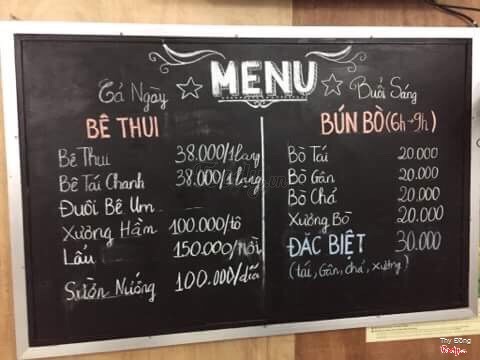 MENU
Cả Ngày
BÊ THUI
Bê Thui 38.000/1lạng
Bê Tái Chanh 38.000/1lạng
Đuôi Bê Um
Xương Hầm 100.000/tô
Lẩu 150.000/nồi
Sườn Nướng 100.000/dĩa
Buổi Sáng
BÚN BÒ (6h→9h)
Bò Tái 20.000
Bò Gân 20.000
Bò Chả 20.000
Xương Bò 20.000
ĐẶC BIỆT 30.000
(tái, Gân, chả, xương)
Thy Đông